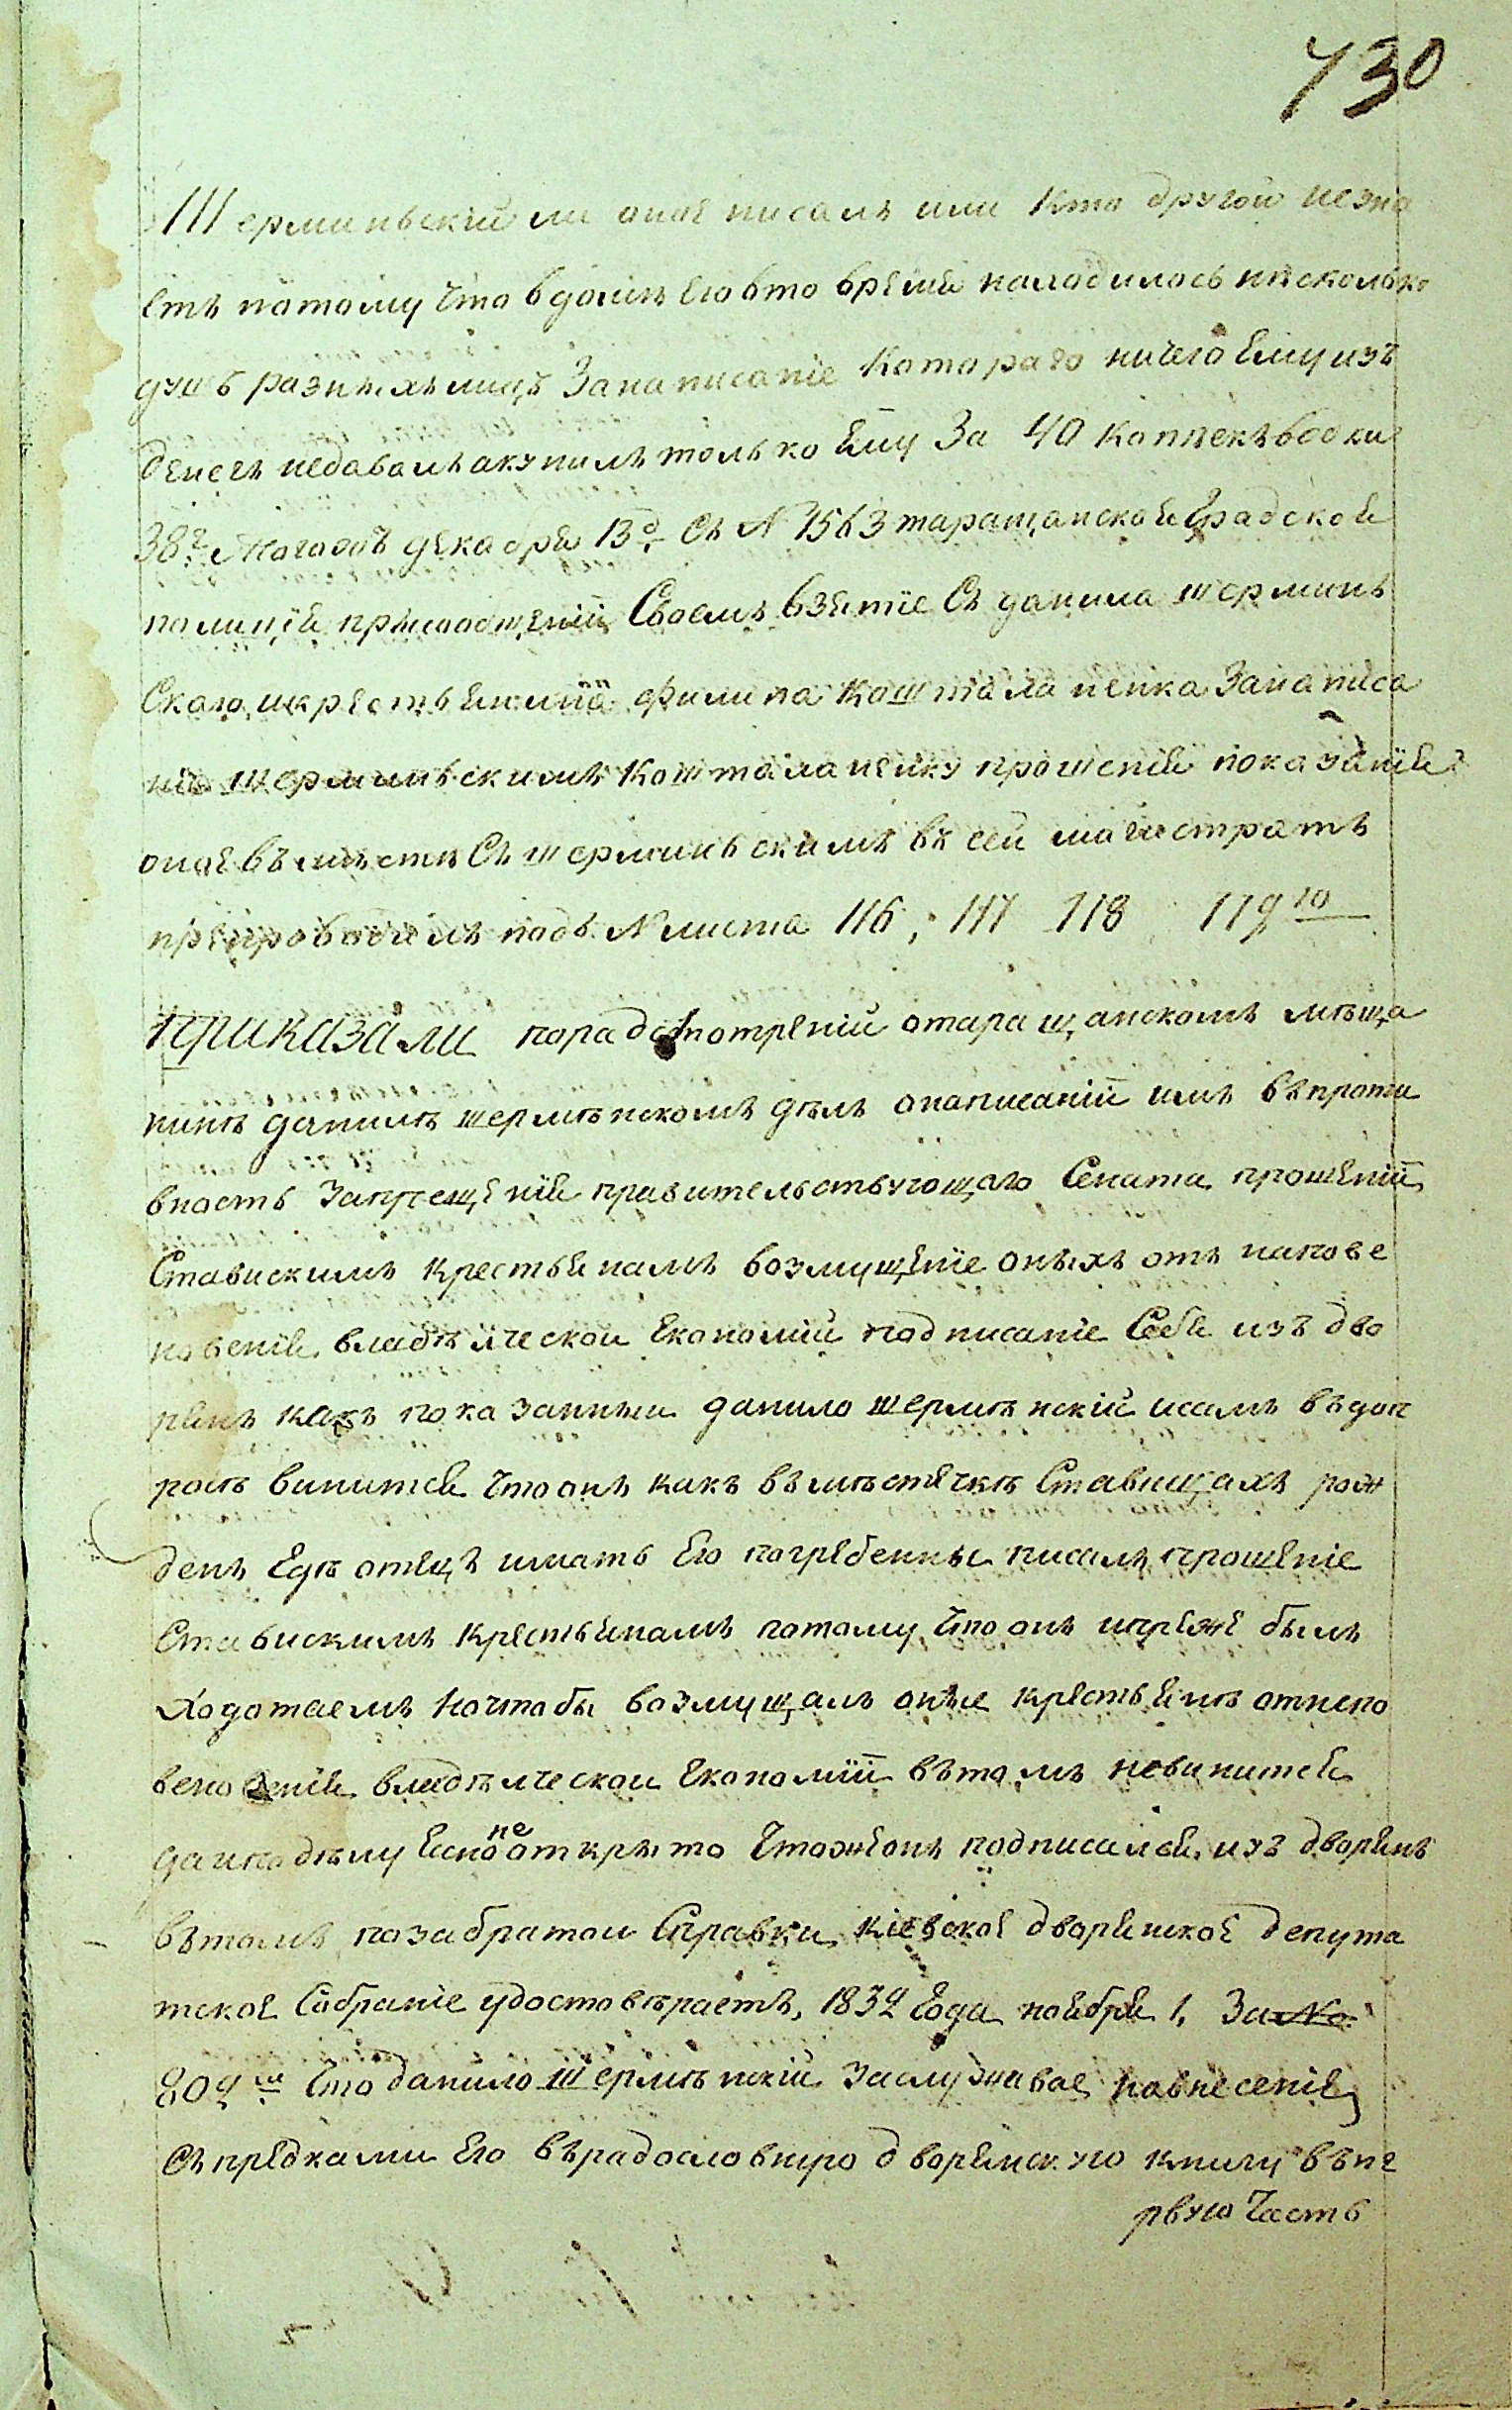 730
Шерминьский ли оное писалъ или кто другой незна
етъ потому что вдоме его вто время находилось несколько
душъ разныхъ лицъ Занаписание котораго ничего Ему изъ
денегъ недавалъ акупилъ только ему За 40 копеекъ водки
38е. Тогогодъ декабря 13д. Съ N 1563 таращанской Градской
полиции присообщении Своемъ взятие Съ данила шерминь
Скаго, икрестьянина филипа Кошталаненка Занаписа
ние шерминьскимъ Кошталаненку прошения показания
оное въместе Съ шерминьскимъ въ сей магистратъ
препроводилъ подъ N листа 116, 117 118 119ю
приказали поразсмотрении отаращанскомъ мѣща
нинѣ данилѣ шермѣнскомъ дѣлѣ онаписании имъ въпроти
вность Запрещения правительствующаго Сената прошений
Ставискимъ крестьянамъ возмущение оныхъ отъ напове
новения владѣлческой Економии подписание Себя изъ дво
рянъ какъ показанный данило шермѣнский исамъ въдоп
росѣ винится что онъ какъ въмѣстечкѣ Ставищахъ рож
денъ Едѣ отецъ имать Его погребенны писалъ прошение
Ставискимъ крестьянамъ потому, что онъ ипреже былъ
Ходотаемъ Ночтобы возмущалъ оные крестьянъ отнепо
веновения владѣлческой Економии вътомъ невинится
да иподѣлу Ескоро не открыто Чтожеонъ подписался изъ дворянъ
вътомъ позабратой Справки, киевское дворянское депута
тское Собрание удостовѣраетъ, 1832 Года ноября 1, За No
809м Что данило шермѣнский заслуживае повнесения
Съ предками Его въродословную дворянскую книгу въпе
рвую Часть